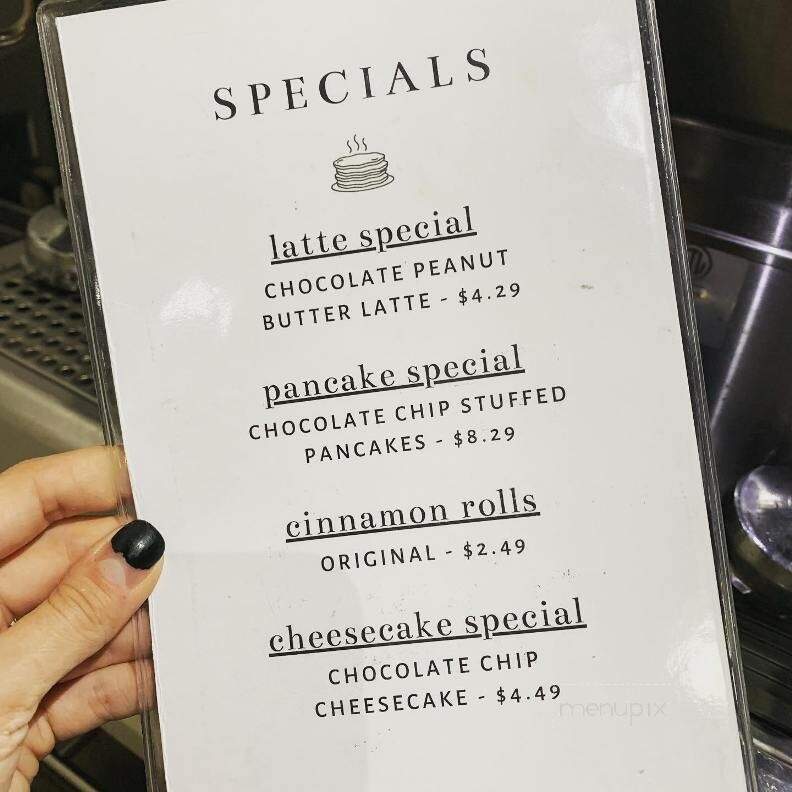 SPECIALS
latte special
CHOCOLATE PEANUT
BUTTER LATTE - $4.29
pancake special
CHOCOLATE CHIP STUFFED
PANCAKES - $8.29
cinnamon rolls
ORIGINAL - $2.49
cheesecake special
CHOCOLATE CHIP
CHEESECAKE - $4.49
menupix